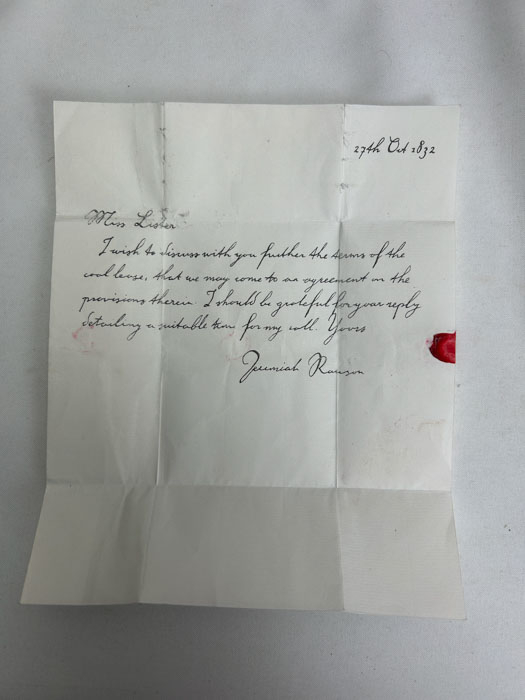 27th Oct 1832
Miss Lister
I wish to discuss with you further the terms of the
coal lease, that we may come to an agreement on the
provisions therein. I should be grateful for your reply
detailing a suitable time for my call. Yours
Jeremiah Rawson